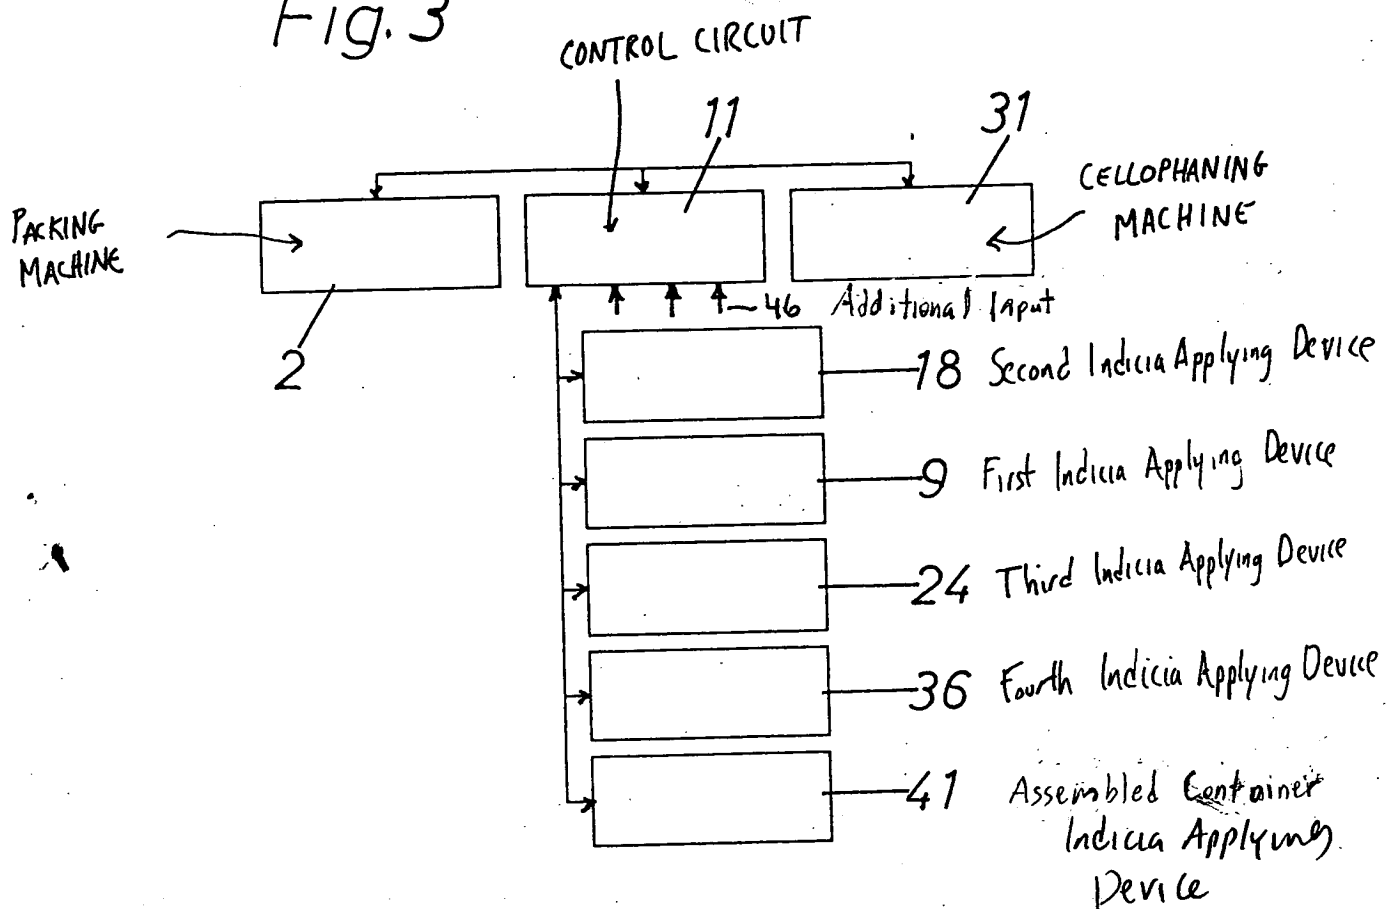 Fig. 3
CONTROL CIRCUIT
11
31
CELLOPHANING
MACHINE
PACKING
MACHINE
2
46 Additional Input
18 Second Indicia Applying Device
9 First Indicia Applying Device
24 Third Indicia Applying Device
36 Fourth Indicia Applying Device
41 Assembled Container
Indicia Applying
Device